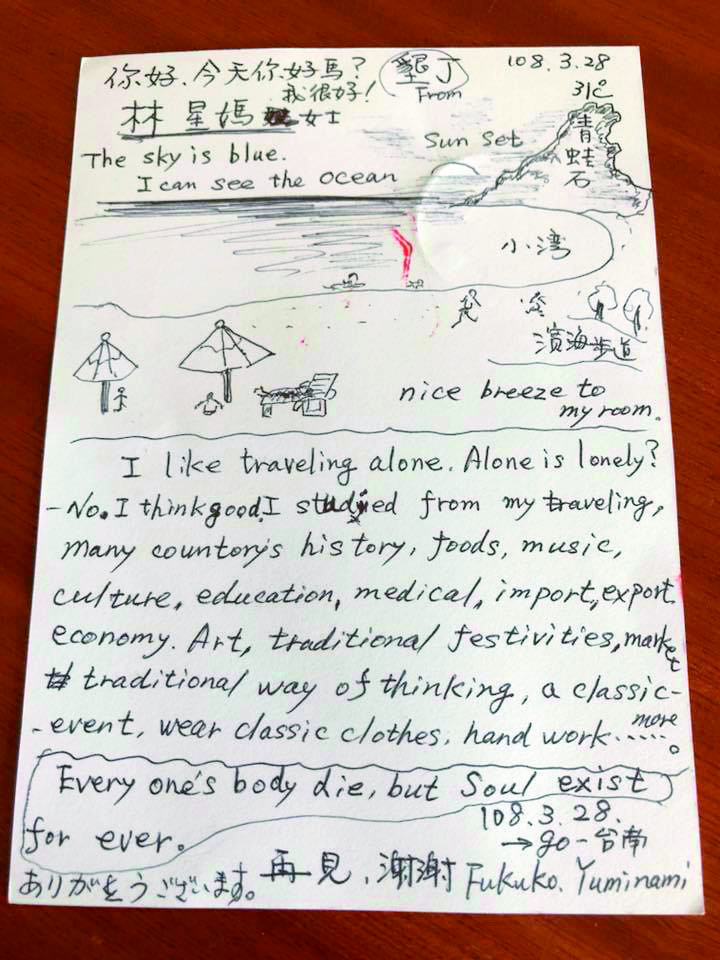 你好、今天你好馬?
墾丁
108.3.28
我很好!
From
31℃
林星媽 女士
The sky is blue.
Sun set
青蛙石
I can see the ocean
小湾
濱海步道
nice breeze to
my room.
I like traveling alone. Alone is lonely?
-No. I think good. I studied from my traveling,
many countory's history, foods, music,
culture, education, medical, import, export
economy. Art, traditional festivities, market
traditional way of thinking, a classic-
-event, wear classic clothes, hand work......more。
Every one's body die, but Soul exist
for ever.
108.3.28.
→go-台南
ありがとうございます。再見、謝謝 Fukuko. Yuminami